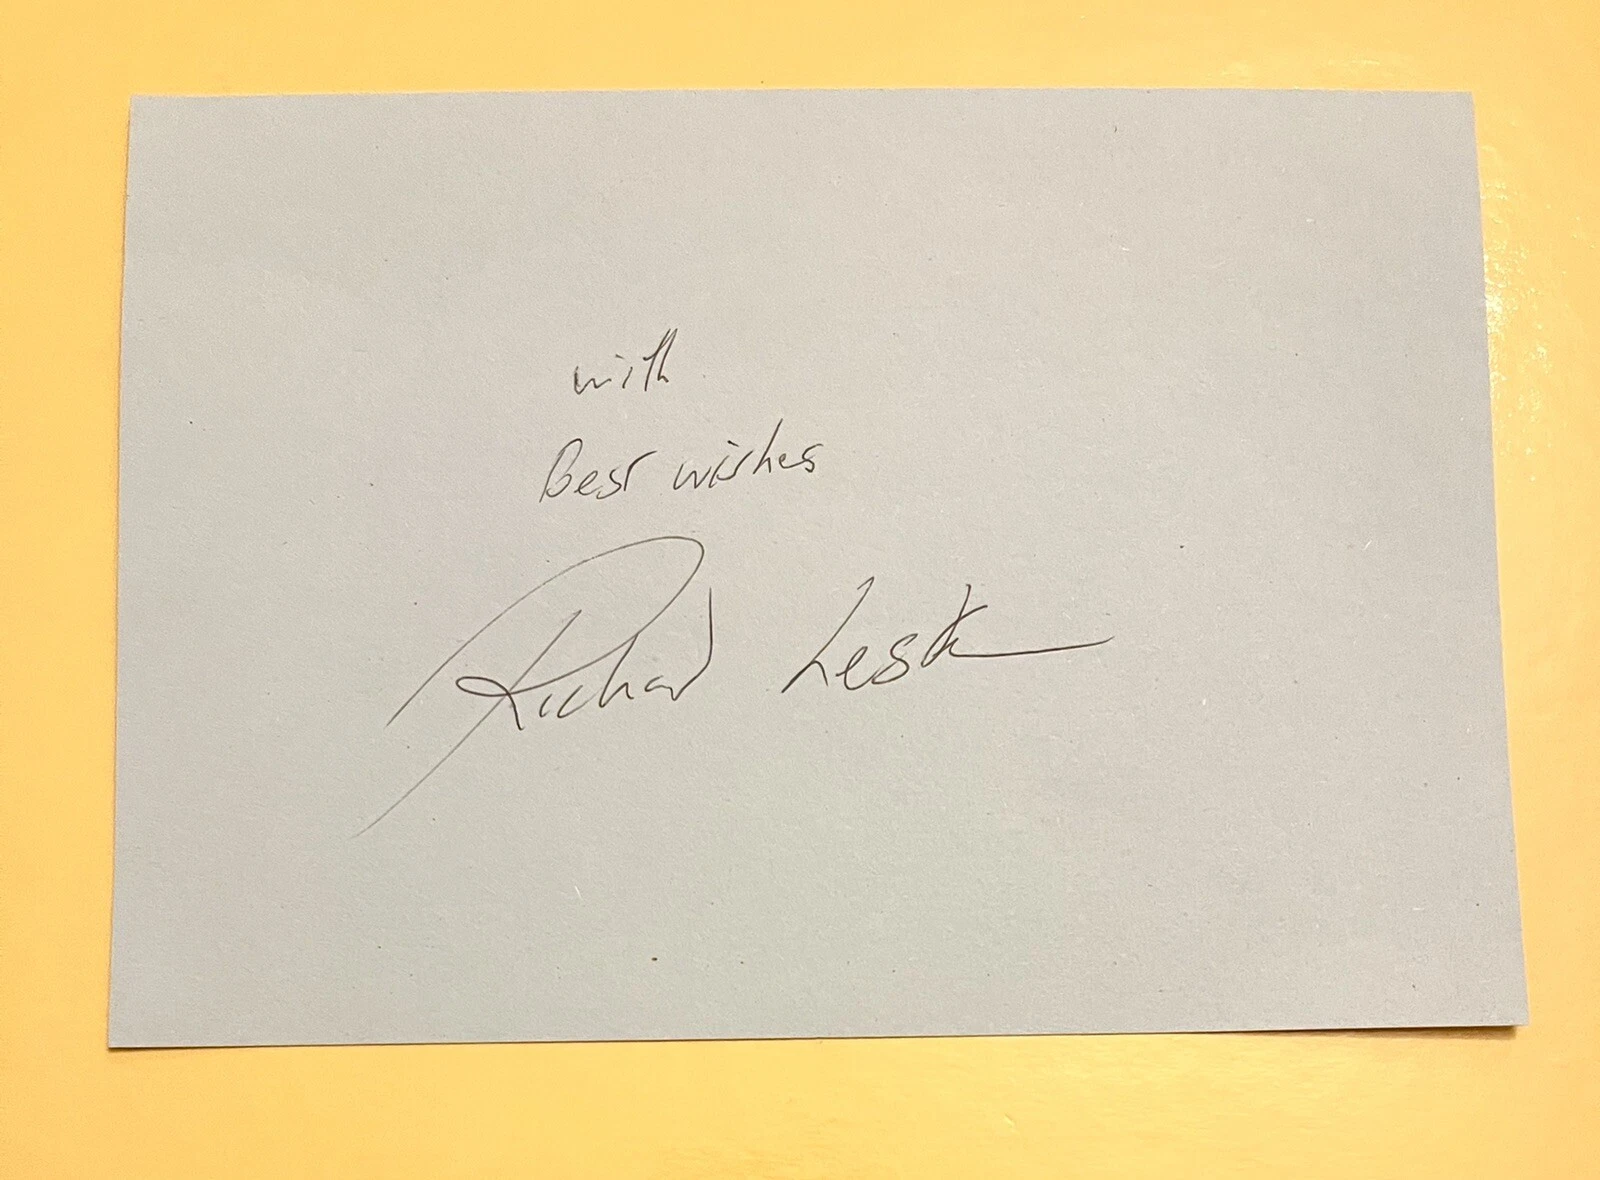 with
Best wishes
Richard Lest